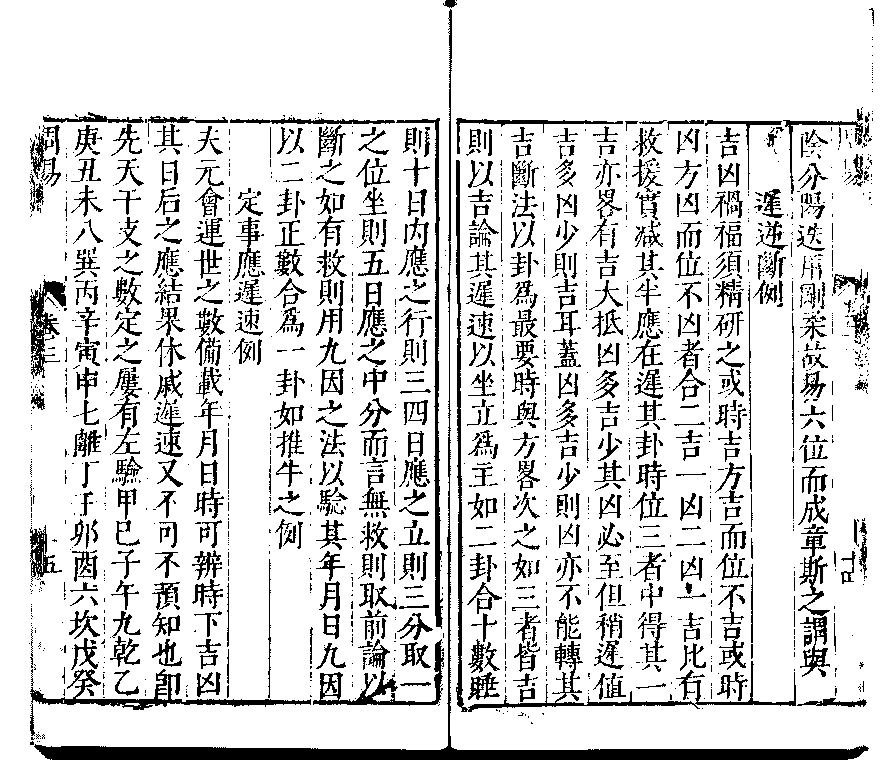 陰分陽迭用剛柔故易六位而成章斯之謂與
遲速斷例
吉凶禍福須精研之或時吉方吉而位不吉或時
凶方凶而位不凶者合二吉一凶二凶一吉比有
救援實减其半應在遲其卦時位三者中得其一
吉亦畧有吉大抵凶多吉少其凶必至但稍遲值
吉多凶少則吉耳蓋凶多吉少則凶亦不能轉其
吉斷法以卦爲最要時與方畧次之如三者皆吉
則以吉論其遲速以坐立爲主如二卦合十數睡
則十日内應之行則三四日應之立則三分取一
之位坐則五日應之中分而言無救則取前論以
斷之如有救則用九因之法以驗其年月日九因
以二卦正數合爲一卦如推牛之例
定事應遲速例
夫元會運世之數備載年月日時可辨時下吉凶
其日后之應結果休戚遲速又不可不預知也卽
先天干支之數定之屢有左驗甲巳子午九乾乙
庚丑未八巽丙辛寅申七離丁壬卯酉六坎戊癸
周易
卷三
十五
十四